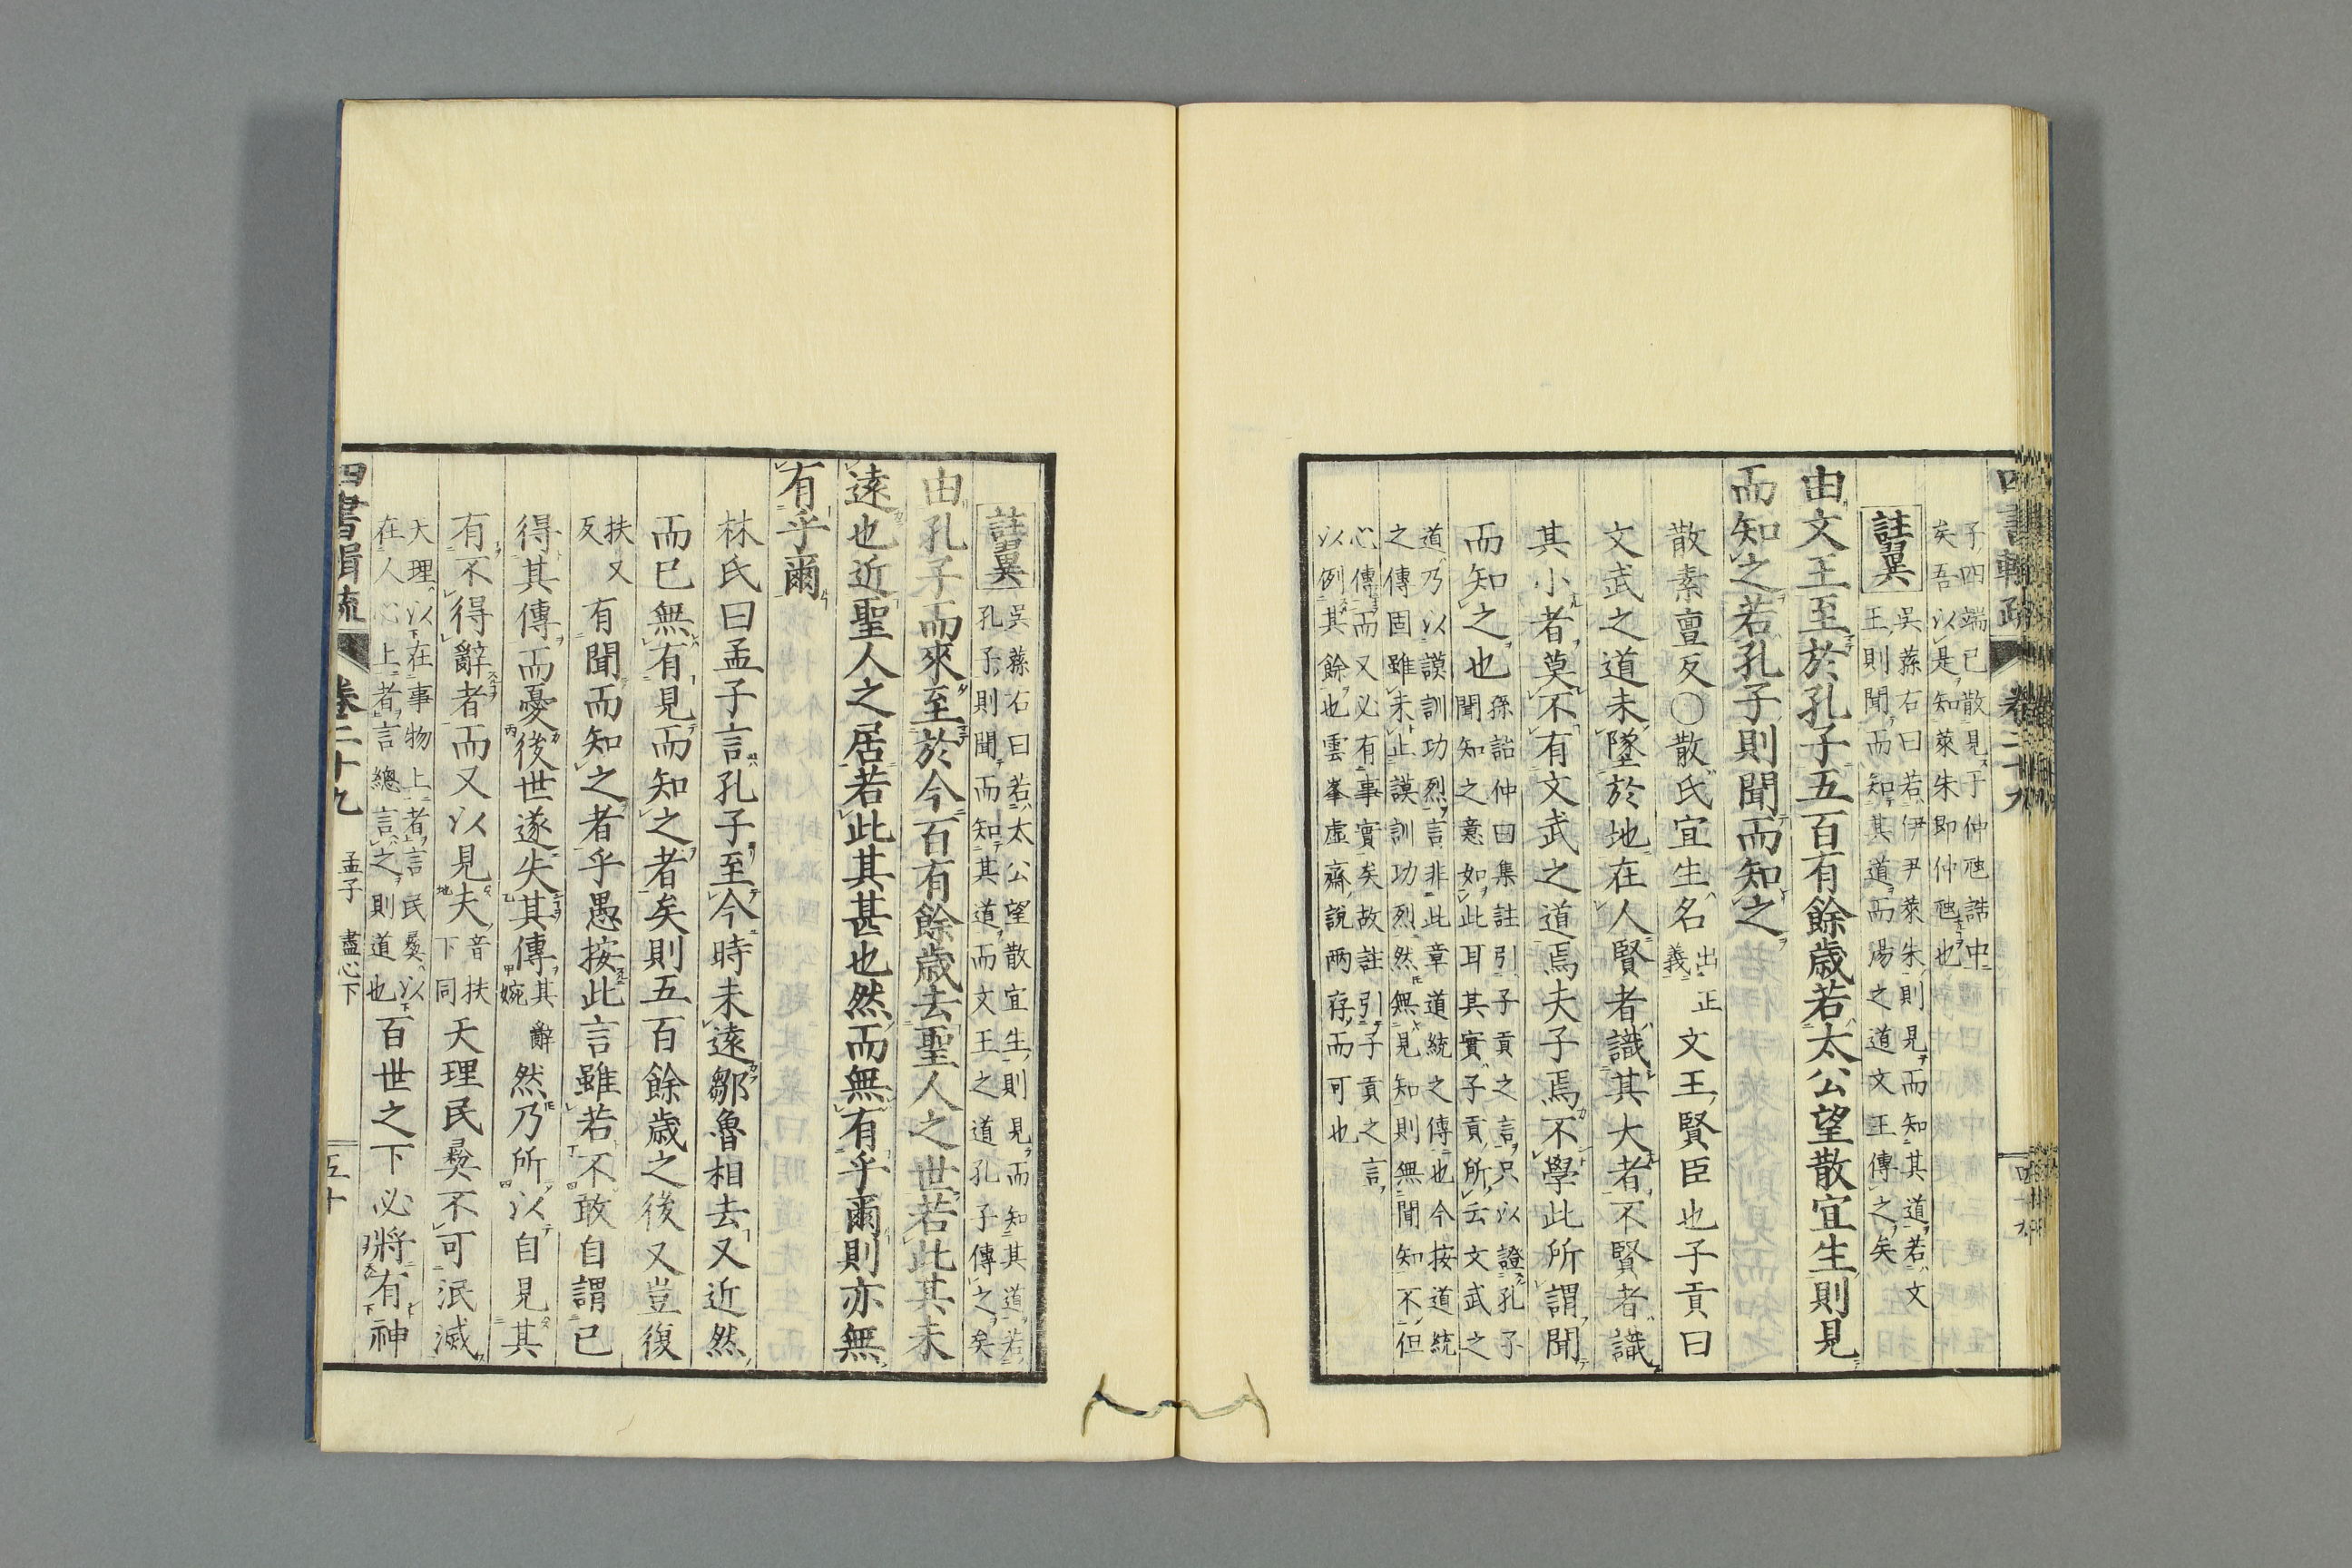 四書輯疏 卷二十九 四十九
子四端已散見于仲虺誥中
矣吾以是知萊朱即仲虺也
註翼
吳蓀右曰若伊尹萊朱則見而知其道若文
王則聞而知其道而湯之道文王傳之矣
由文王至於孔子五百有餘歲若太公望散宜生則見
而知之若孔子則聞而知之
散素亶反○散氏宜生名出正義文王賢臣也子貢曰
文武之道未墜於地在人賢者識其大者不賢者識
其小者莫不有文武之道焉夫子焉不學此所謂聞
而知之也
孫詒仲曰集註引子貢之言只以證孔子
聞知之意如此耳其實子貢所云文武之
道乃以謨訓功烈言非此章道統之傳也今按道統
之傳固雖未止謨訓功烈然無見知則無聞知不但
心傳而又必有事實矣故註引子貢之言
以例其餘也雲峯虛齋說兩存而可也
註翼
吳蓀右曰若太公望散宜生則見而知其道若
孔子則聞而知其道而文王之道孔子傳之矣
由孔子而來至於今百有餘歲去聖人之世若此其未
遠也近聖人之居若此其甚也然而無有乎爾則亦無
有乎爾
林氏曰孟子言孔子至今時未遠鄒魯相去又近然
而已無有見而知之者矣則五百餘歲之後又豈復
扶又反有聞而知之者乎愚按此言雖若不敢自謂已
得其傳而憂後世遂失其傳其辭婉然乃所以自見其
有不得辭者而又以見夫音扶下同天理民彝不可泯滅
天理以在事物上者言民彝以
在人心上者言總言之則道也
百世之下必將有神
四書輯疏 卷二十九 孟子 盡心下 五十